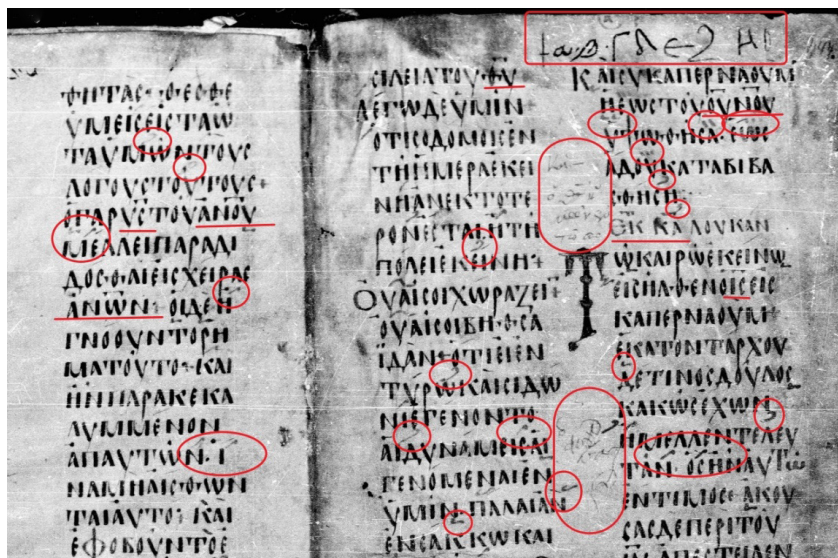 ΦΗΤΑϹ·ΘΕϹΘΕ
ΥΜΕΙϹΕΙϹΤΑΩ
ΤΑΥΜΩΝΤΟΥϹ
ΛΟΓΟΥϹΤΟΥΤΟΥϹ+
ΟΓΑΡΥ̅Ϲ̅ΤΟΥΑ̅Ν̅Ο̅Υ̅
ΜΕΛΛΕΙΠΑΡΑΔΙ
ΔΟϹΘΑΙΕΙϹΧΕΙΡΑϹ
Α̅Ν̅Ω̅Ν̅+ΟΙΔΕΗ
ΓΝΟΟΥΝΤΟΡΗ
ΜΑΤΟΥΤΟ+ΚΑΙ
ΗΝΠΑΡΑΚΕΚΑ
ΛΥΜΜΕΝΟΝ
ΑΠΑΥΤΩΝ·Ϊ
ΝΑΜΗΑΙϹΘΩΝ
ΤΑΙΑΥΤΟ+ΚΑΙ
ΕΦΟΒΟΥΝΤΟΕ
ϹΙΛΕΙΑΤΟΥΘ̅Υ̅
ΛΕΓΩΔΕΥΜΙΝ+
ΟΤΙϹΟΔΟΜΟΙϹΕΝ
ΤΗΗΜΕΡΑΕΚΕΙ
ΝΗΑΝΕΚΤΟΤΕ
ΡΟΝΕϹΤΑΙΗΤΗ
ΠΟΛΕΙΕΚΕΙΝΗ+
ΟΥΑΙϹΟΙΧΩΡΑΖΕΙ
ΟΥΑΙϹΟΙΒΗΘϹΑ
ΪΔΑΝ+ΟΤΙΕΙΕΝ
ΤΥΡΩΚΑΙϹΙΔΩ
ΝΙΕΓΕΝΟΝΤΟ
ΑΙΔΥΝΑΜΕΙϹΑΙ
ΓΕΝΟΜΕΝΑΙΕΝ
ΥΜΙΝ·ΠΑΛΑΙΑΝ
ΕΝϹΑΚΚΩΚΑΙ
ΚΑΙϹΥΚΑΠΕΡΝΑΟΥΜ
ΗΕΩϹΤΟΥΟ̅Υ̅Ν̅Ο̅Υ̅
ΥΨΩΘΗϹΑ·ΕΩϹ
ΑΔΟΥΚΑΤΑΒΙΒΑ
ϹΘΗϹΗ
ΕΚ ΚΑ ΛΟΥΚΑΝ
ΤΩΚΑΙΡΩΕΚΕΙΝΩ
ΕΙϹΗΛΘΕΝΟΙ̅Ϲ̅ΕΙϹ
ΚΑΠΕΡΝΑΟΥΜ+
ΕΚΑΤΟΝΤΑΡΧΟΥ
ΔΕΤΙΝΟϹΔΟΥΛΟϹ
ΚΑΚΩϹΕΧΩΝ
ΗΜΕΛΛΕΝΤΕΛΕΥ
ΤΑΝ·ΟϹΗΝΑΥΤΩ
ΕΝΤΙΜΟϹ·ΑΚΟΥ
ϹΑϹΔΕΠΕΡΙΤΟΥ